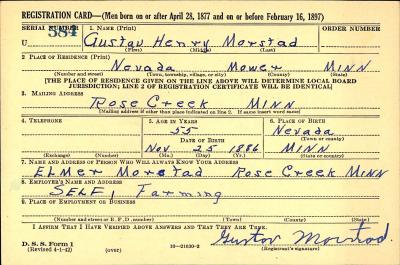 REGISTRATION CARD—(Men born on or after April 28, 1877 and on or before February 16, 1897)
SERIAL NUMBER 1. NAME (Print) ORDER NUMBER
U 384 Gustav Henry Morstad
(First) (Middle) (Last)
2. PLACE OF RESIDENCE (Print)
Nevada Mower MINN
(Number and street) (Town, township, village, or city) (County) (State)
[THE PLACE OF RESIDENCE GIVEN ON THE LINE ABOVE WILL DETERMINE LOCAL BOARD
JURISDICTION; LINE 2 OF REGISTRATION CERTIFICATE WILL BE IDENTICAL]
3. MAILING ADDRESS
Rose Creek MINN
[Mailing address if other than place indicated on line 2. If same insert word same]
4. TELEPHONE 5. AGE IN YEARS 6. PLACE OF BIRTH
55 Nevada
DATE OF BIRTH (Town or county)
Nov 25 1886 MINN
(Exchange) (Number) (Mo.) (Day) (Yr.) (State or country)
7. NAME AND ADDRESS OF PERSON WHO WILL ALWAYS KNOW YOUR ADDRESS
ELMER Morstad Rose Creek MINN
8. EMPLOYER'S NAME AND ADDRESS
SELF, Farming
9. PLACE OF EMPLOYMENT OR BUSINESS
(Number and street or R. F. D. number) (Town) (County) (State)
I AFFIRM THAT I HAVE VERIFIED ABOVE ANSWERS AND THAT THEY ARE TRUE.
D. S. S. Form 1
(Revised 4-1-42) (over) 16—21630-2 Gustav Morstad
(Registrant's signature)